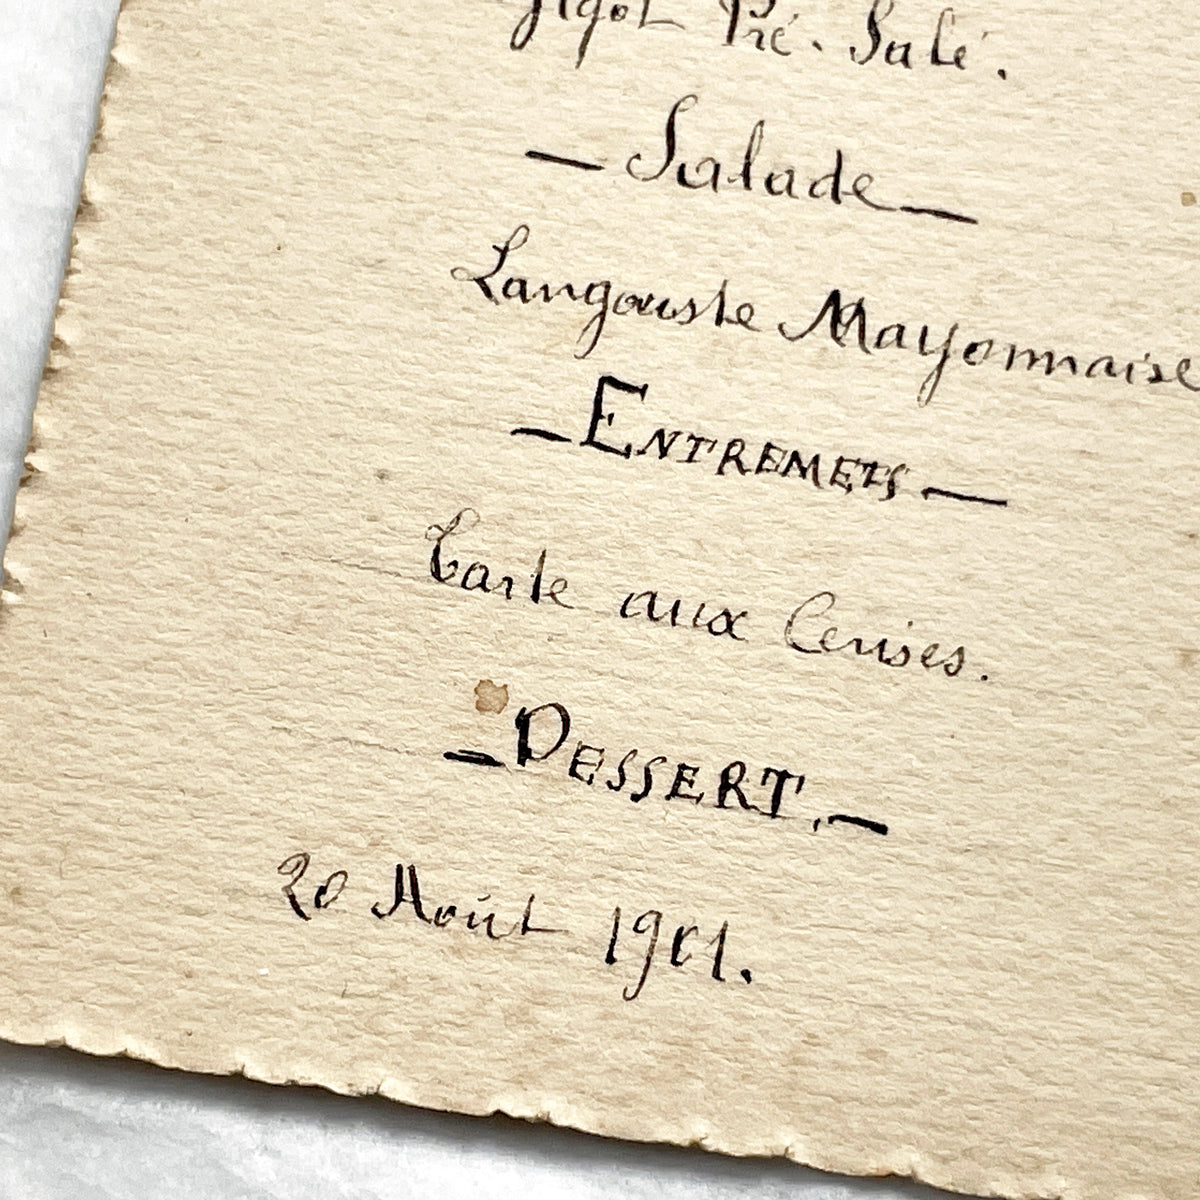 Gigot Pré-Salé.
— Salade —
Langouste Mayonnaise
— ENTREMETS —
Tarte aux Cerises.
— DESSERT. —
20 Août 1901.